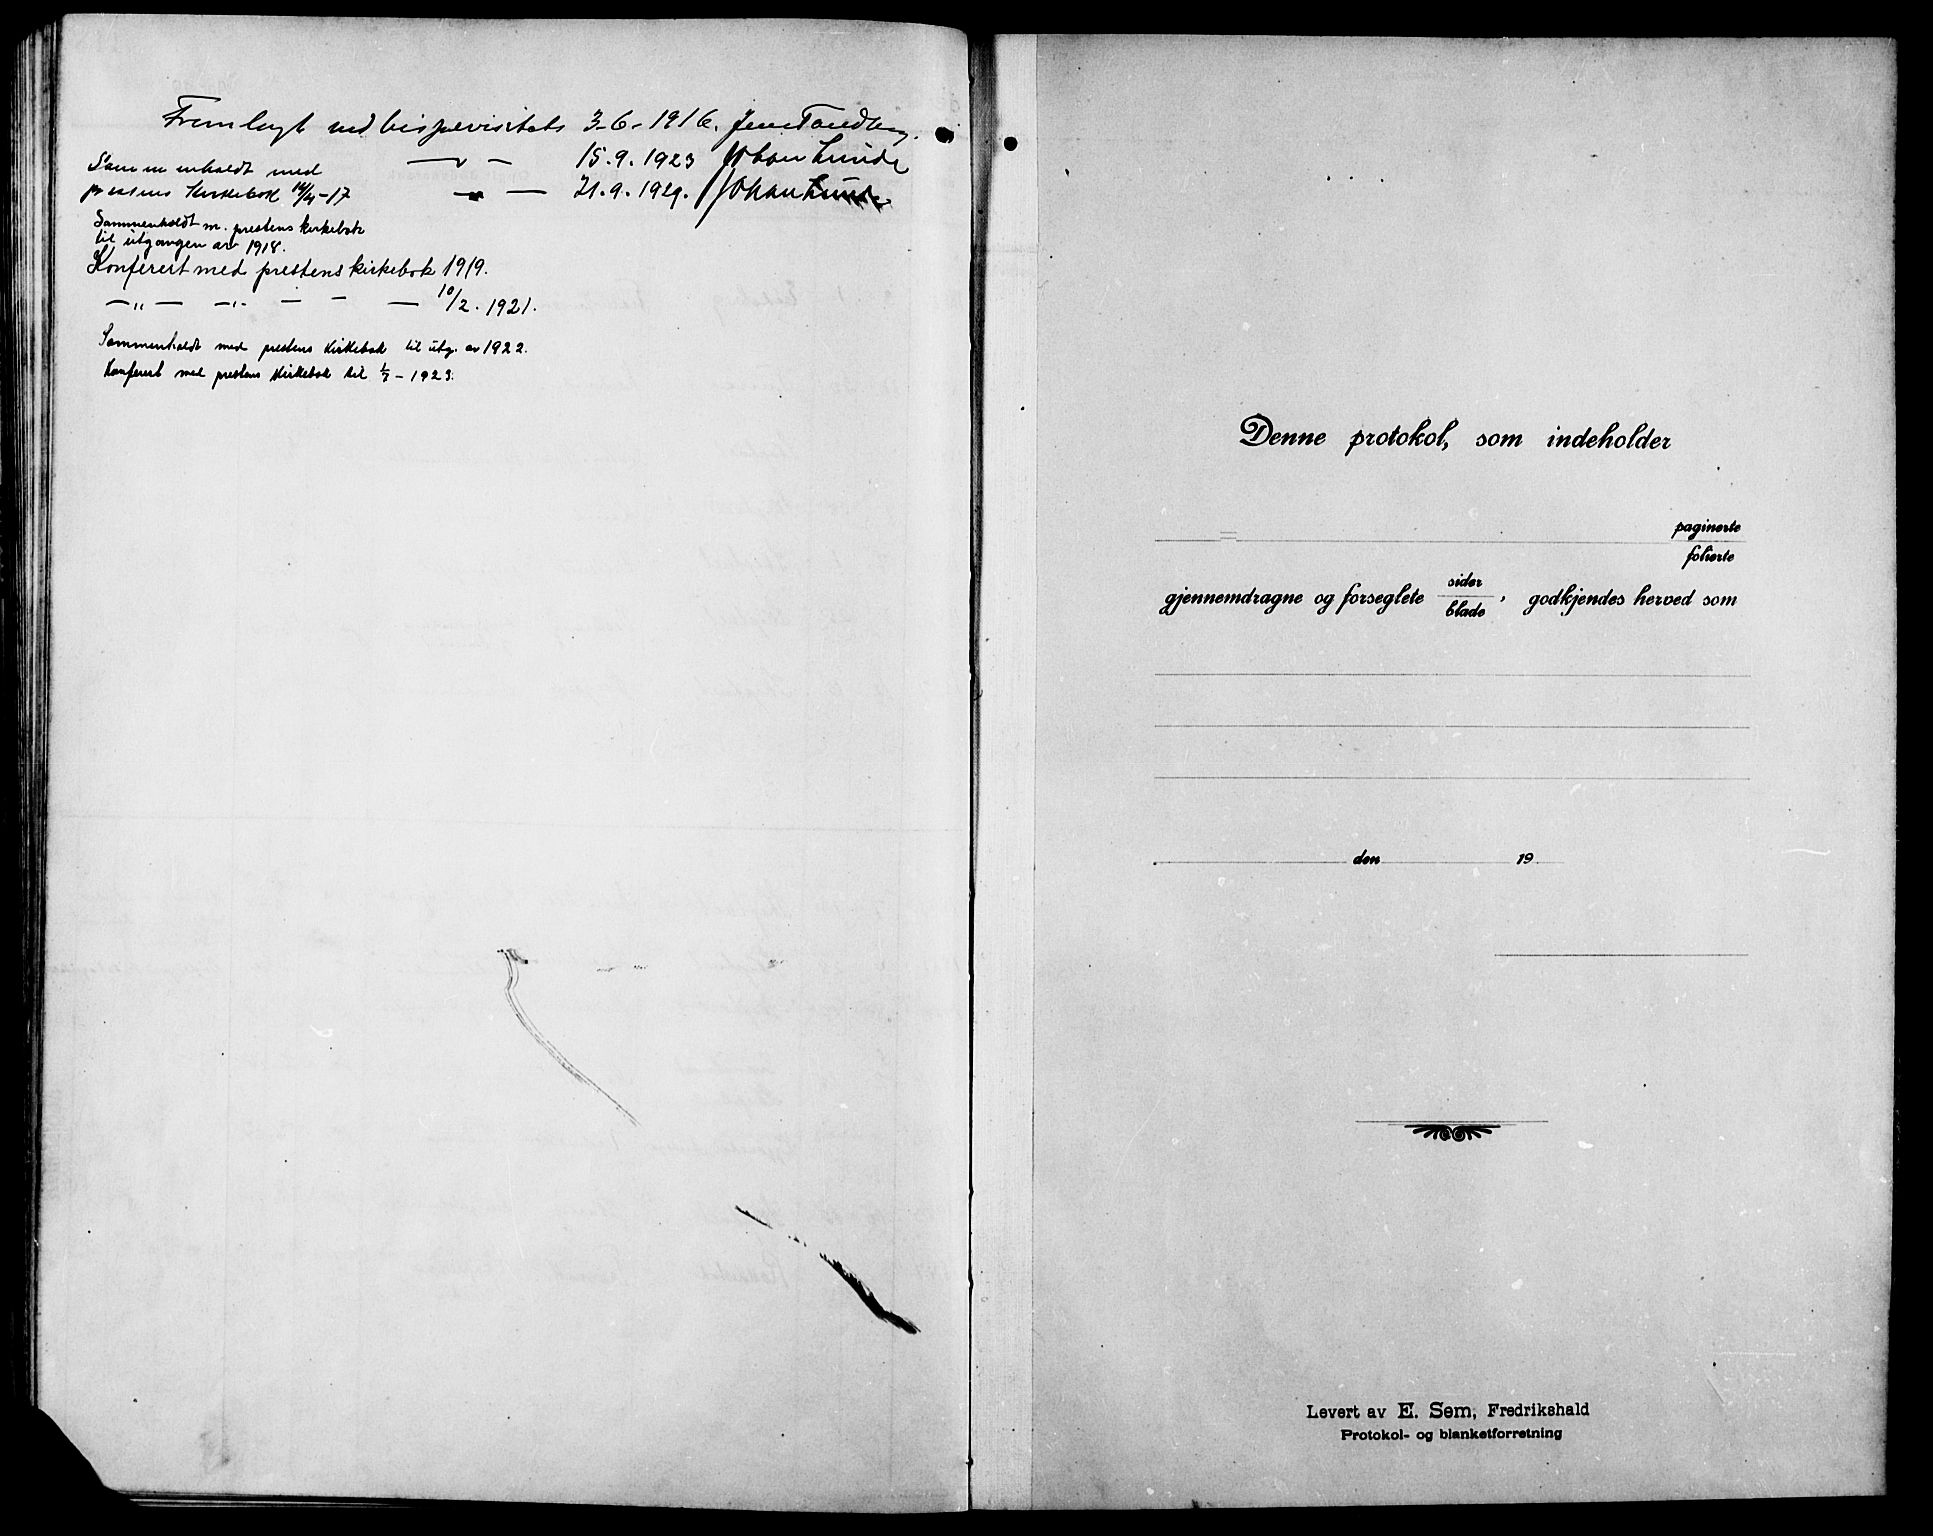 Fremlagt ved bispevisitats 3-6-1916. Jens Tandberg.
— " — 15.9.1923 Johan Lunde
Sammenholdt med
prestens Kirkebok 14/4-17
— " — 21.9.1929. Johan Lunde
Sammenholdt m. prestens kirkebok
til utgangen av 1918.
Konferert med prestens kirkebok 1919.
— „ — — „ - — - — 10/2. 1921.
Sammenholdt med prestens Kirkebok til utg. av 1922.
Konferert med prestens Kirkebok til 1/7 - 1923.
Denne protokol, som indeholder
paginerte
folierte
gjennemdragne og forseglete sider/blade, godkjendes herved som
den 19
Levert av E. Sem, Fredrikshald
Protokol- og blanketforretning